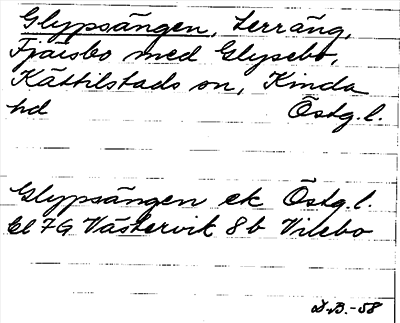 Glypsängen, terräng,
Fjäisbo med Glysebo,
Kättilstads sn, Kinda
hd Östg.l.
Glypsängen ek Östg.l.
bl 7G Västervik 8b Vilebo
D.B.-58